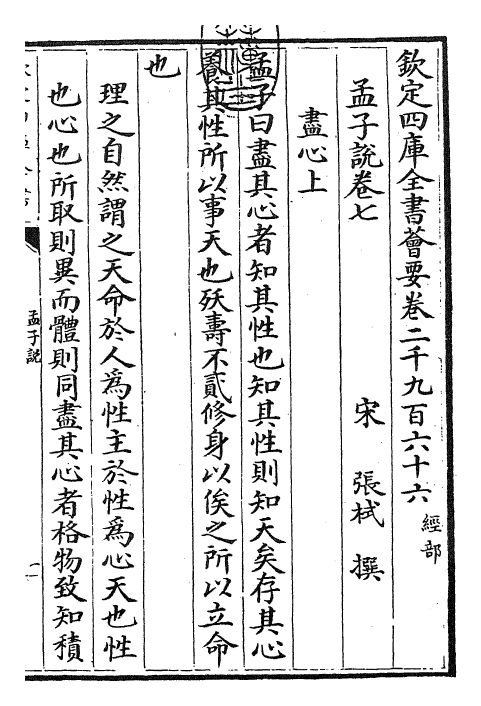 欽定四庫全書薈要卷二千九百六十六 經部
孟子說卷七
宋 張栻 撰
盡心上
孟子曰盡其心者知其性也知其性則知天矣存其心
養其性所以事天也殀壽不貳修身以俟之所以立命
也
理之自然謂之天命於人為性主於性為心天也性
也心也所取則異而體則同盡其心者格物致知積
孟子說
一